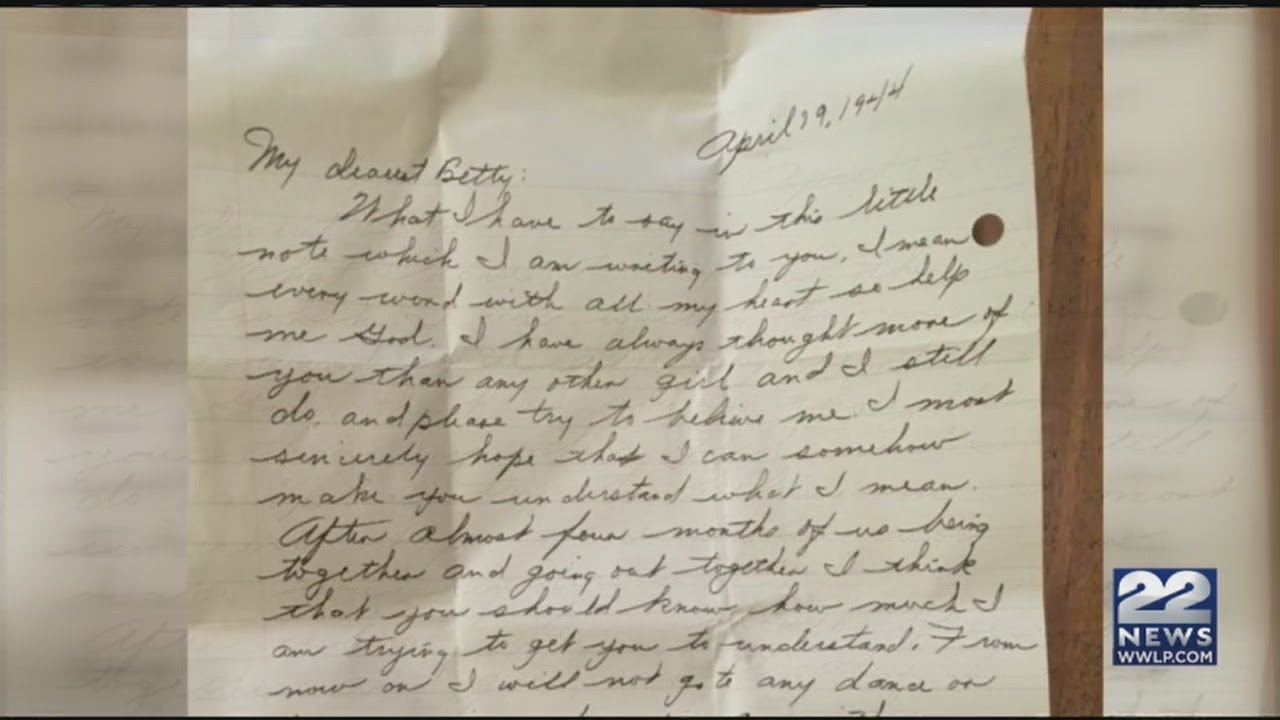 April 29, 1944
My dearest Betty:
What I have to say in this little
note which I am writing to you, I mean
every word with all my heart so help
me God. I have always thought more of
you than any other girl and I still
do, and please try to believe me. I most
sincerely hope that I can somehow
make you understand what I mean.
After almost four months of us being
together and going out together I think
that you should know how much I
am trying to get you to understand. From
now on I will not go to any dance or
22
NEWS
WWLP.COM